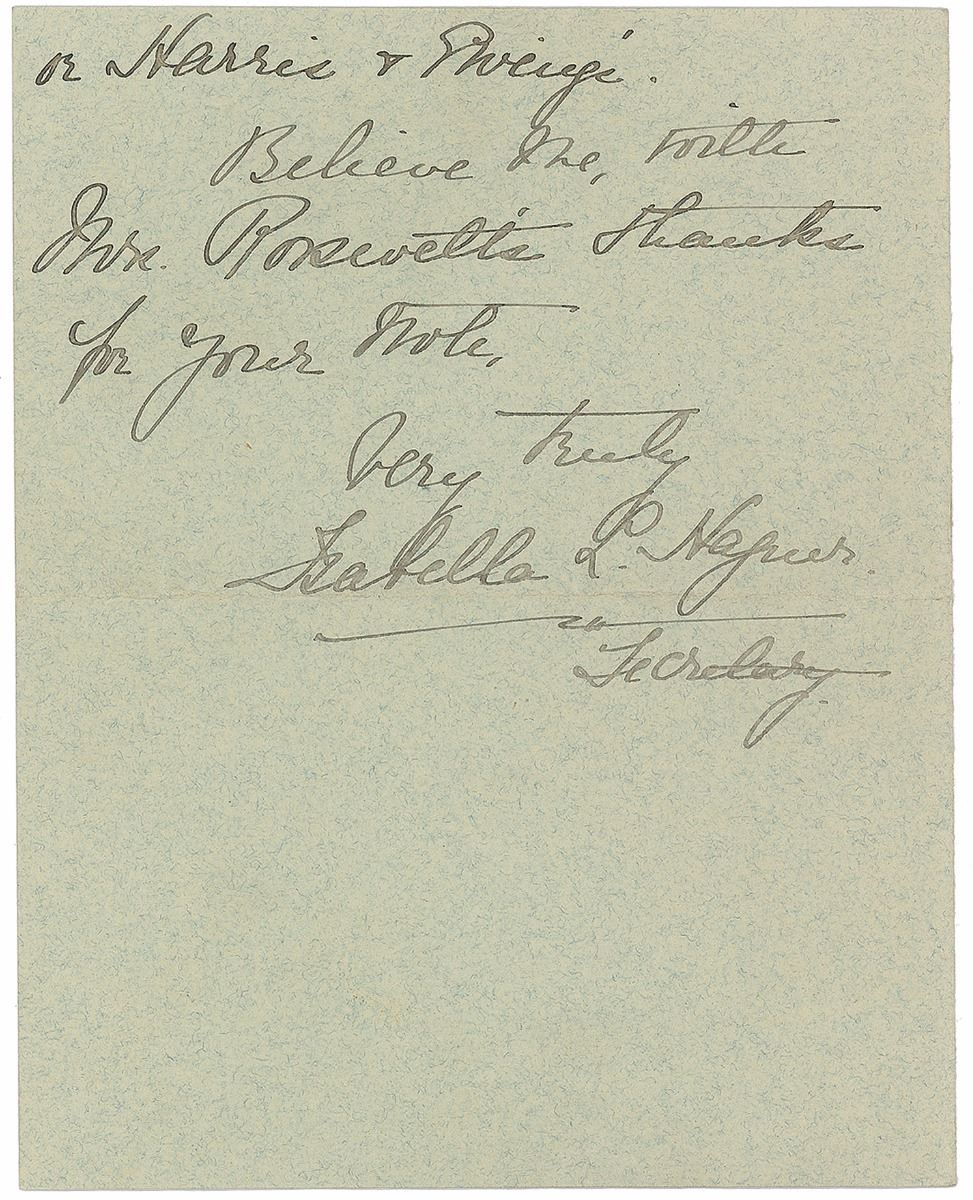 or Harris & Ewing's.
Believe me, with
Mrs. Roosevelt's thanks
for your note,
Very truly
Isabella L. Hagner.
Secretary.